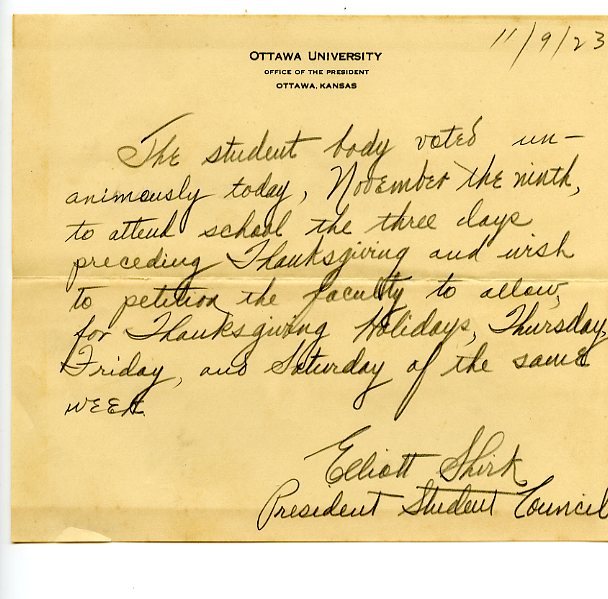 11/9/23
OTTAWA UNIVERSITY
OFFICE OF THE PRESIDENT
OTTAWA, KANSAS
The student body voted un-
animously today, November the ninth,
to attend school the three days
preceding Thanksgiving and wish
to petition the faculty to allow,
for Thanksgiving Holidays, Thursday,
Friday, and Saturday of the same
week.
Elliott Shirk
President Student Council